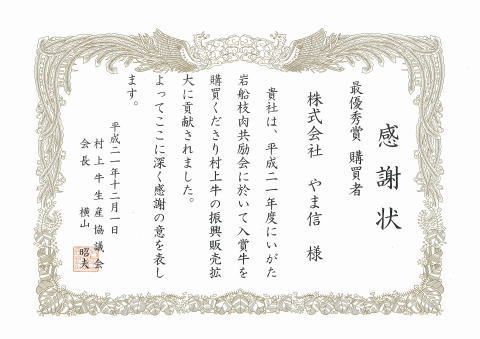 感謝状
最優秀賞 購買者
株式会社 やま信 様
貴社は、平成二一年度にいがた
岩船枝肉共励会に於いて入賞牛を
購買くださり村上牛の振興販売拡
大に貢献されました。
よってここに深く感謝の意を表し
ます。
平成二一年十二月一日
村上牛生産協議会
会長 横山 昭夫